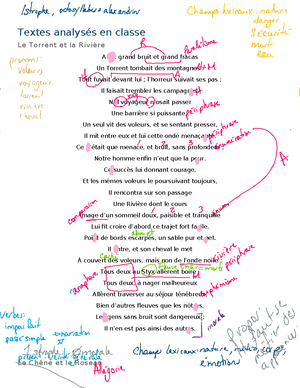 1strophe, octosyllabes + alexandrins
Champs lexicaux: nature
danger
sécurité
mort
eau
Textes analysés en classe
Le Torrent et la Rivière
pronoms:
voleurs
voyageur
torrent
rivière
cheval
A
Avec grand bruit et grand fracas
Un Torrent tombait des montagnes :
Tout fuyait devant lui ; l'horreur suivait ses pas ;
Il faisait trembler les campagnes.
Nul voyageur n'osait passer
périphrase
Une barrière si puissante :
Un seul vit des voleurs, et se sentant presser,
Il mit entre eux et lui cette onde menaçante.
périphrase
Ce n'était que menace, et bruit, sans profondeur ;
énumération
Notre homme enfin n'eut que la peur.
Ce succès lui donnant courage,
Et les mêmes voleurs le poursuivant toujours,
Il rencontra sur son passage
Une Rivière dont le cours
Image d'un sommeil doux, paisible et tranquille
Lui fit croire d'abord ce trajet fort facile.
Point de bords escarpés, un sable pur et net.
Il entre, et son cheval le met
À couvert des voleurs, mais non de l'onde noire :
Tous deux au Styx allèrent boire ;
périphrase
Tous deux, à nager malheureux,
anaphore
Allèrent traverser au séjour ténébreux,
Bien d'autres fleuves que les nôtres.
Les gens sans bruit sont dangereux ;
Il n'en est pas ainsi des autres.
morale
Verbes:
imparfait
passé simple
présent
Champs lexicaux: nature,
émotion
Le Chêne et le Roseau
Allégorie